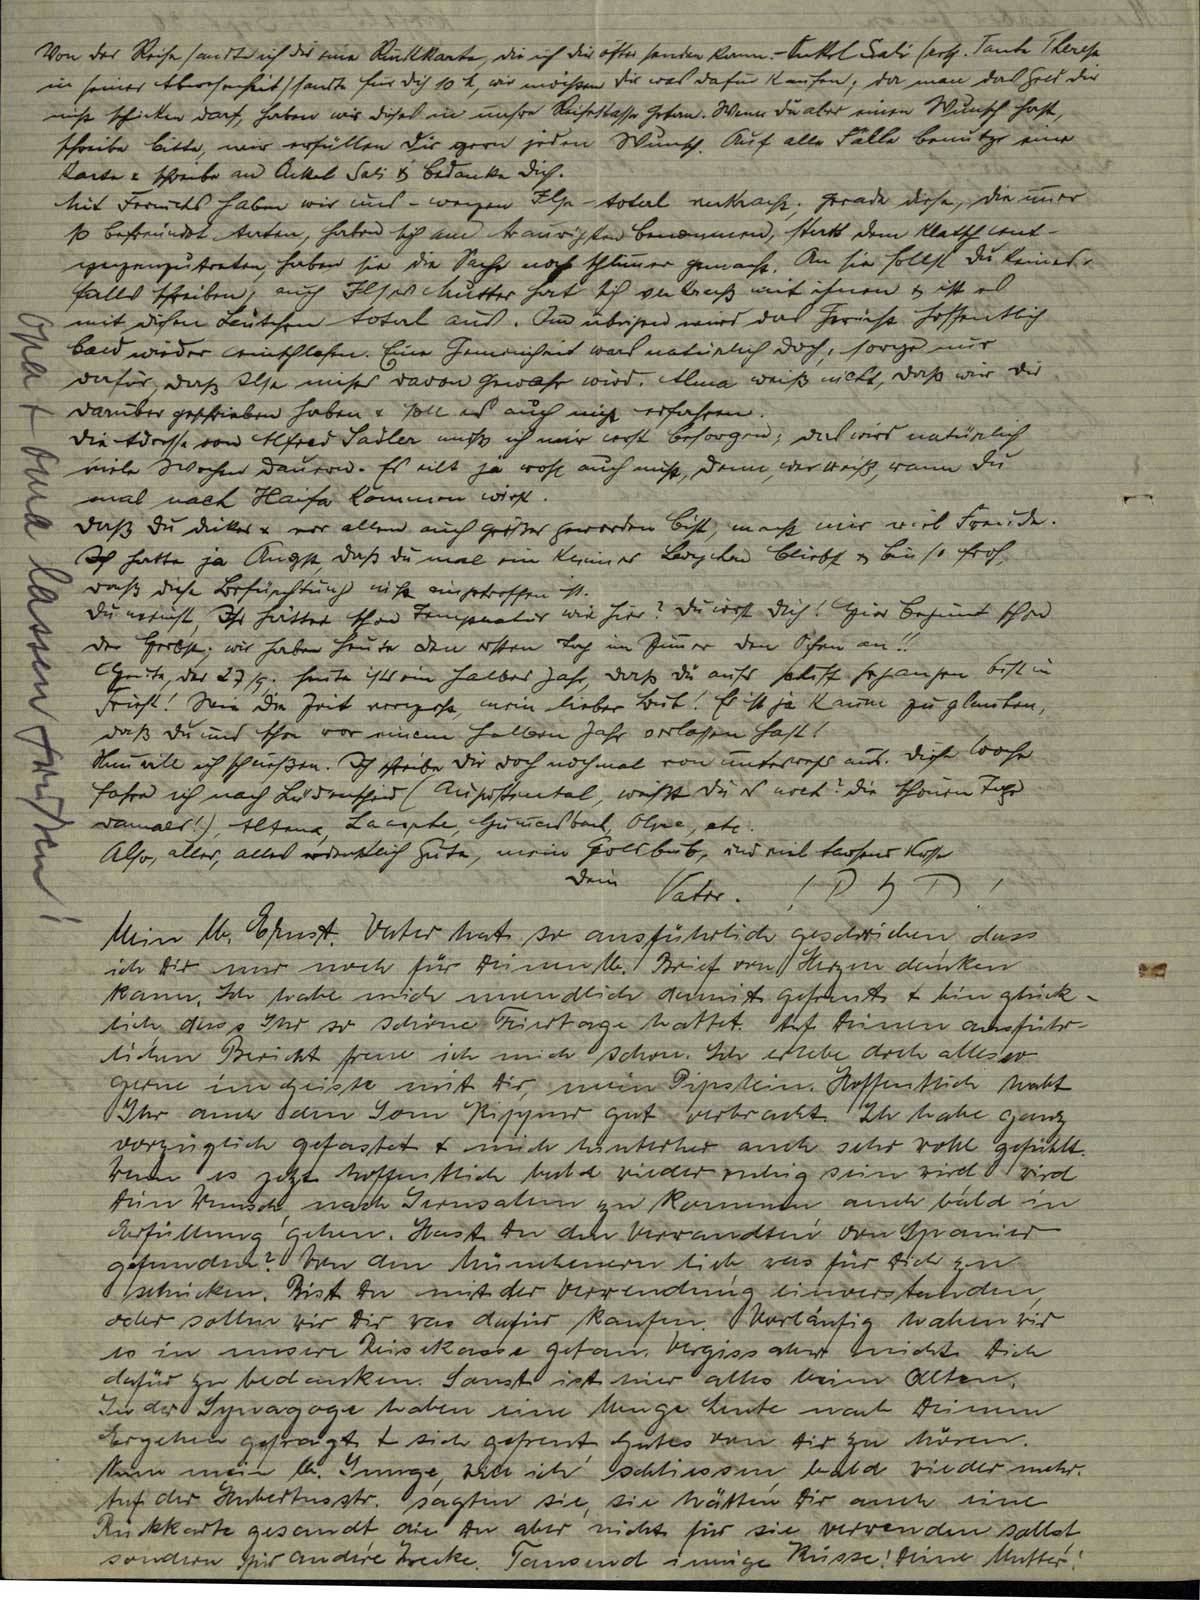 Von der Reise sandte ich dir eine Rückkarte, die ich dir öfter senden kann. – Onkel Sali (resp. Tante Therese
in seiner Abwesenheit) sandte für dich 10 M, wir möchten dir was dafür kaufen; da man das Geld dir
nicht schicken darf, haben wir dieses in unsre Reisekasse getan. Wenn du aber einen Wunsch hast,
schreibe bitte, wir erfüllen dir gern jeden Wunsch. Auf alle Fälle benutze eine
Karte & schreibe an Onkel Sali & bedanke dich.
Mit haben wir uns – wegen Ilse – total verkracht; gerade diese, die immer
so befreundet taten, haben sich am traurigsten benommen, statt dem Klatsch ent-
gegenzutreten, haben sie die Sache noch schlimmer gemacht. An sie sollst du keines-
falls schreiben; auch Ilses Mutter hat sich verkracht mit ihnen & ist es
mit diesen Leutchen total aus. Im übrigen wird das Gerücht hoffentlich
bald wieder einschlafen. Eine Gemeinheit wars natürlich doch; sorge nur
dafür, daß Ilse nichts davon gewahr wird. Alma weiß nicht, daß wir dir
darüber geschrieben haben & soll es auch nicht erfahren.
Die Adresse von Alfred Sadler muß ich mir erst besorgen; das wird natürlich
viele Wochen dauern. Es eilt ja wohl auch nicht, denn, wer weiß, wann du
mal nach Haifa kommen wirst.
Daß du dicker & vor allem auch größer geworden bist, macht mir viel Freude.
Ich hatte ja Angst, daß du mal ein kleines bliebst & bin so froh,
daß diese Befürchtung nicht eingetroffen ist.
Du meinst, Ihr hättet schon Temperatur wie hier? Du irrst dich! Hier beginnt schon
der Herbst; wir haben heute den ersten Tag im Zimmer den Ofen an!!
Heute, der 27/9. heute ists ein halbes Jahr, daß du aufs Schiff gegangen bist in
Triest! Wie die Zeit vergeht, mein lieber Bub! Es ist ja kaum zu glauben,
daß du uns schon vor einem halben Jahr verlassen hast!
Nun will ich schließen. Ich schreibe dir doch nochmal von unterwegs aus. Diese Woche
fahre ich nach Lüdenscheid ( weißt du es noch? die schönen Tage
damals!), Altena, Gummersbach, Olpe, etc.
Also, alles, alles erdenklich Gute, mein Goldbub, und viel tausend Küsse
Dein Vater.
Mein lb. Ernst. Vater hat so ausführlich geschrieben dass
ich Dir nur noch für Deinen lb. Brief von Herzen danken
kann. Ich habe mich unendlich damit gefreut & bin glück-
lich, dass Ihr so schöne Feiertage hattet. Auf Deinen ausführ-
lichen Bericht freue ich mich schon. Ich erlebe doch alles so
gerne im Geiste mit Dir, mein Pipslein. Hoffentlich habt
Ihr auch den Jom Kippur gut verbracht. Ich habe ganz
vorzüglich gefastet & mich hinterher auch sehr wohl gefühlt.
Wenn es jetzt hoffentlich bald wieder ruhig sein wird, wird
Dein Wunsch, nach Jerusalem zu kommen auch bald in
Erfüllung gehen. Hast Du den Verwandten von Spanier
gefunden? Von den Münchenern lieb was für Dich zu
schicken. Bist Du mit der Verwendung einverstanden,
oder sollen wir Dir was dafür kaufen. Vorläufig haben wir
es in unsere Reisekasse getan. Vergiss aber nicht, Dich
dafür zu bedanken. Sonst ist hier alles beim Alten.
In der Synagoge haben eine Menge Leute nach Deinem
Ergehen gefragt & sich gefreut Gutes von Dir zu hören.
Nun mein lb. Junge, will ich schliessen, bald wieder mehr.
Auf der Hubertusstr. sagten sie, sie hätten Dir auch eine
Rückkarte gesandt die Du aber nicht für sie verwenden sollst
sondern für andere Zwecke. Tausend innige Küsse! Deine Mutter!
Opa & Oma lassen grüssen!